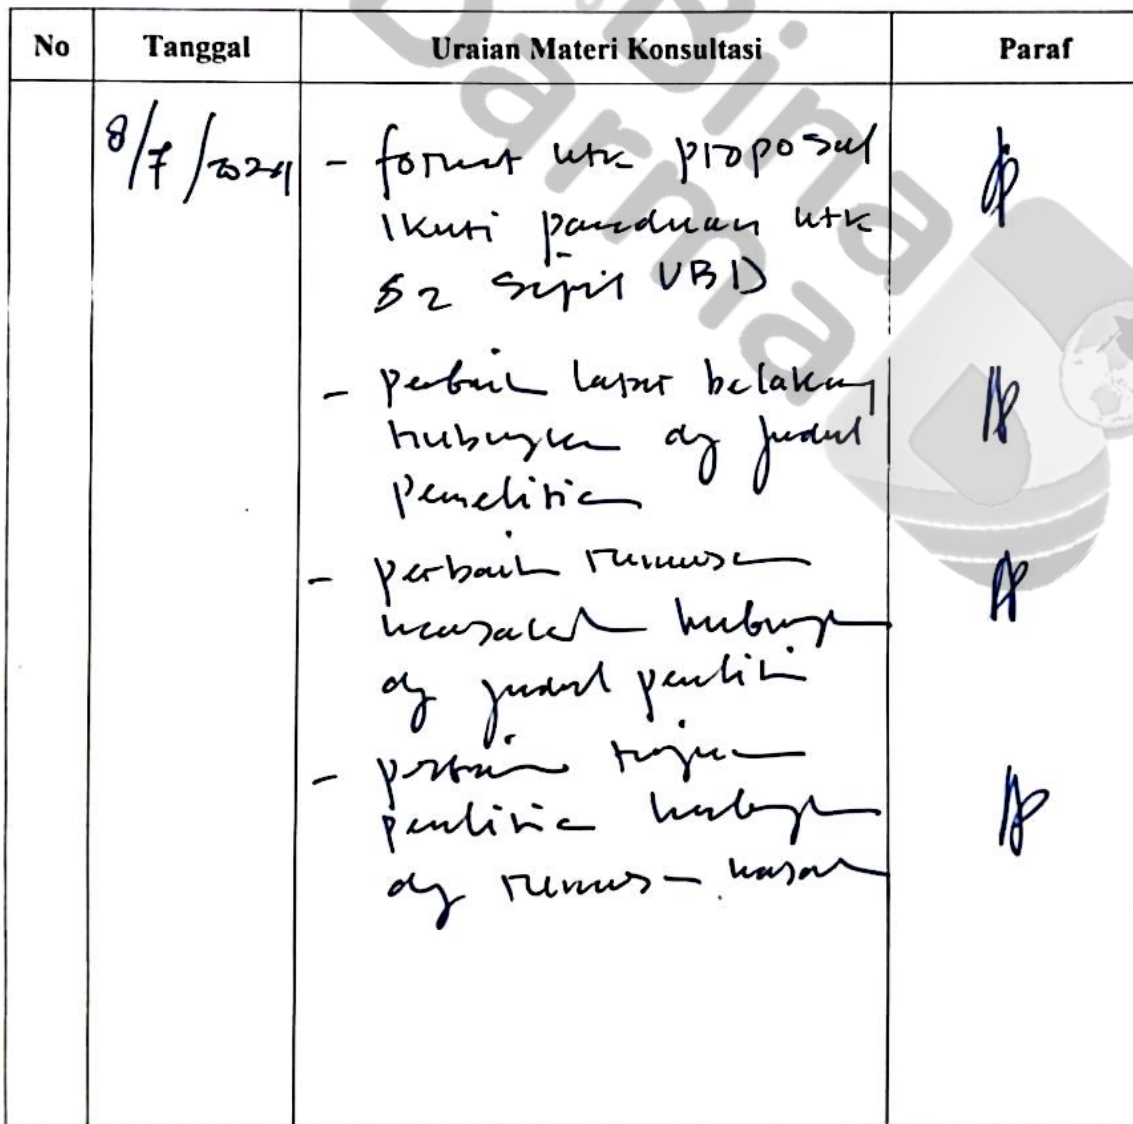 Bina
Darma
No Tanggal Uraian Materi Konsultasi Paraf
8/7/2024 - format utk proposal
ikuti panduan utk
S2 Sipil UBD
- perbaiki latar belakang
hubungkan dg judul
penelitian
- perbaiki rumusan
masalah hubungkan
dg judul penelitian
- perbaiki tujuan
penelitian hubungkan
dg rumusan masalah